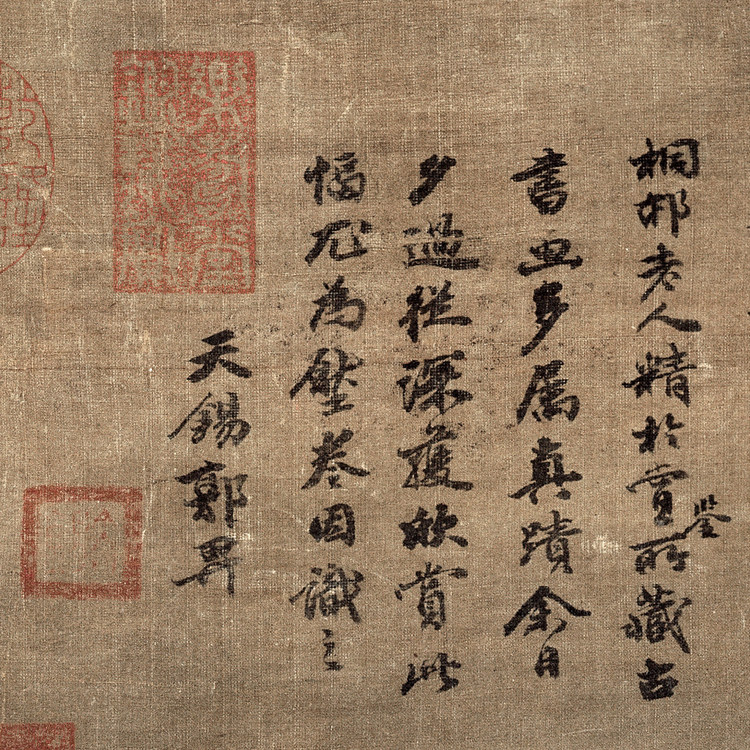 桐邨老人精於賞鑒所藏古
書画多属真蹟余日
夕過從深獲欣賞此
幅尤為壓卷因識之
天錫郭畀